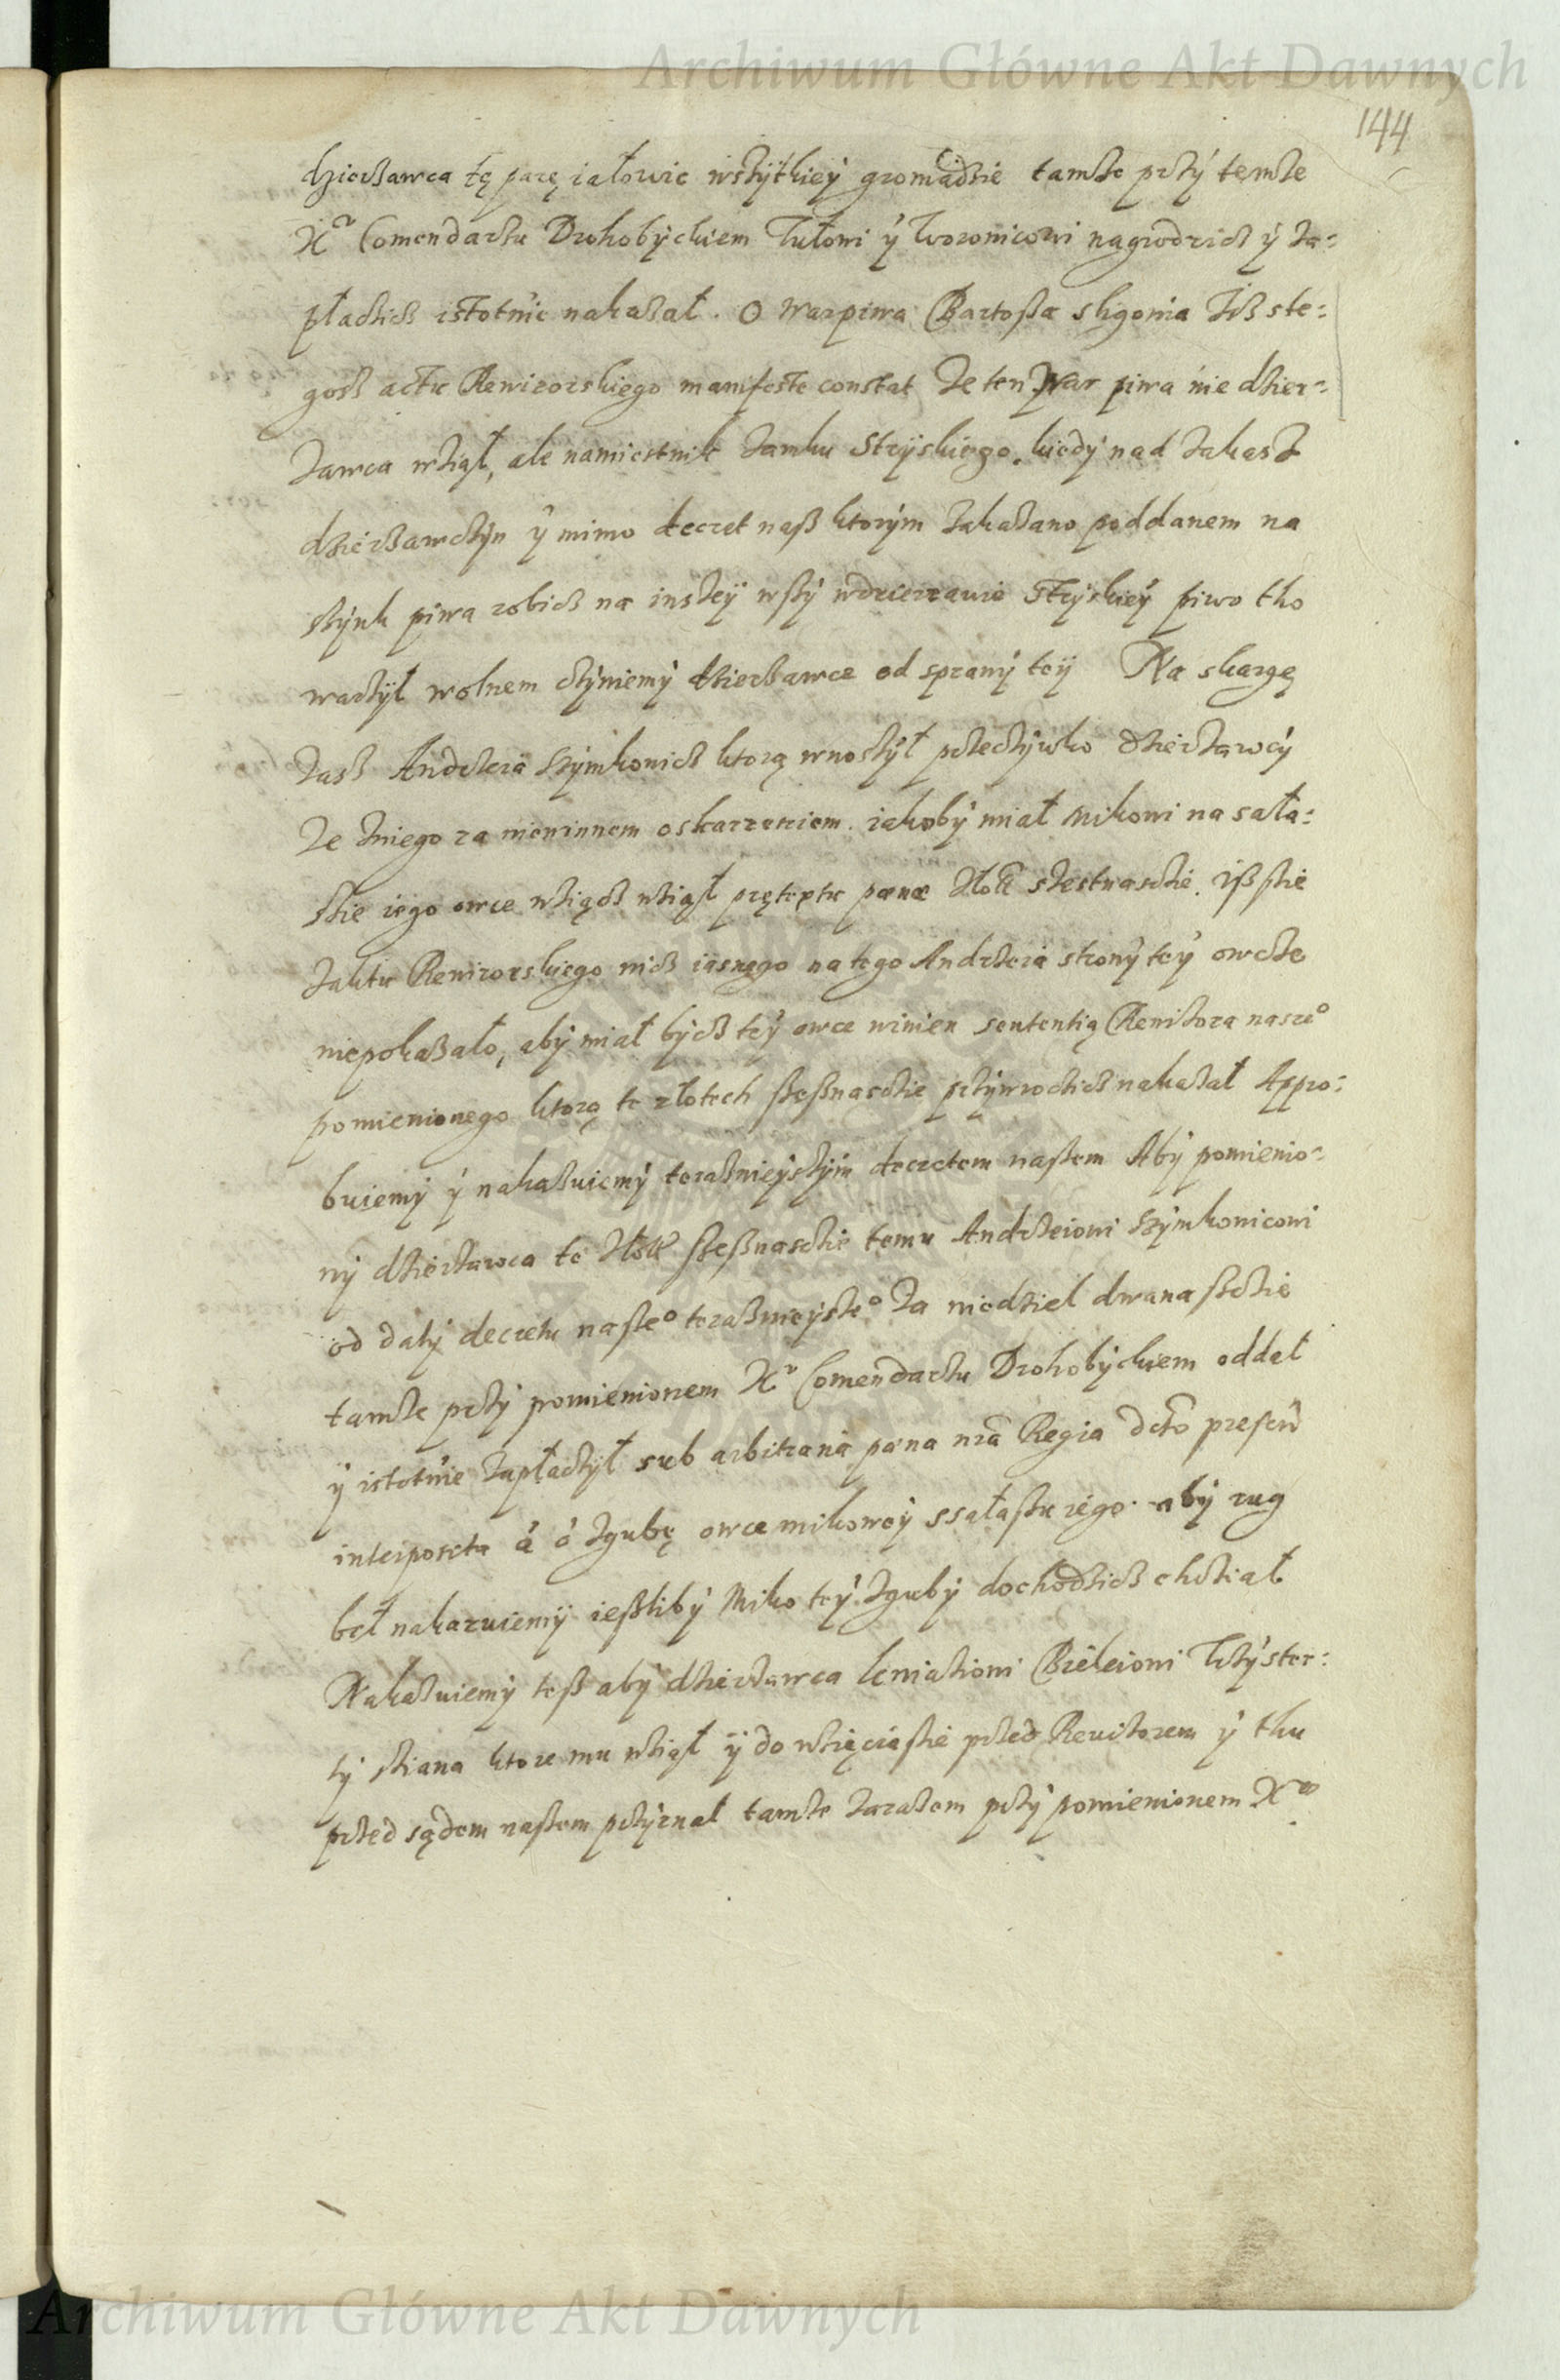 Archiwum Główne Akt Dawnych
144
dzierżawca tę parę iałowic wszytkiey gromadzie tamże przy temże
X Comendarzu Drohobyckiem Tułowi y Iworonicowi nagrodzicz y za-
płaczicz istotnie nakazał. O war piwa Bartosza sligonia Isz ste-
gosz actu Rewizorskiego manifeste constat że ten war piwa nie dzier-
żawca wziął, ale namiestnik zamku Stryskiego. kiedy nad zakasz
dzierżawczyn y mimo decret nasz ktorym zakazano poddanem na
szynk piwa robicz na inszey wszy wdzierzawie Stryskiey piwo tho
warzył wolnem czyniemy dzierżawce od sprawy tey Na skargę
zasz Andrzeia Szymkonicz ktorą wnoszył przeczywko dzierżawcy
że zniego za niewinnem oskarzeniem. iakoby miał Mikowi na sała-
szie iego owce wziącz wziął prętextu pænæ szestnaszczie. iszszie
zaktu Rewizorskiego nicz iasnego na tego Andrzeia strony tey owcze
niepokazało, aby miał bycz tey owce winien sententią Rewizora nasze°
pomienionego ktorą te złotech szesznasczie przywroczicz nakazał Appro-
buiemy y nakazuiemy terasznieyszym decretem naszem Aby pomienio-
ny dzierżawca te szesznasczie temu Andrzeiowi Szymkoniconi
od daty decretu nasze° terasznieysze° za niedziel dwanaszczie
tamże przy pomienionem X Comendarzu Drohobyckiem oddał
y istotnie zapłaczył sub arbitraria pœna nrã Regia dcto presen
interposita á ó zgubę owce mikowey ssałaszu iego. aby rug
beł nakazuiemy ieszliby Miko tey zguby dochodzicz chcział
Nakazuiemy tesz aby dzierżawca Ieniasiowi Bieleiowi Trzyster-
ty sziana ktore mu wziął y do wzięcia szie przed Rewizorem y thu
przed sądem naszem przyznał tamże zarazem przy pomienionem X
Archiwum Główne Akt Dawnych